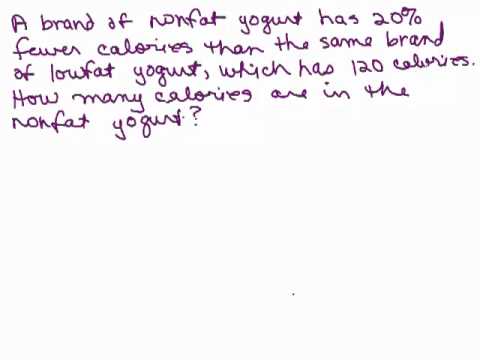 A brand of nonfat yogurt has 20%
fewer calories than the same brand
of lowfat yogurt, which has 120 calories.
How many calories are in the
nonfat yogurt?